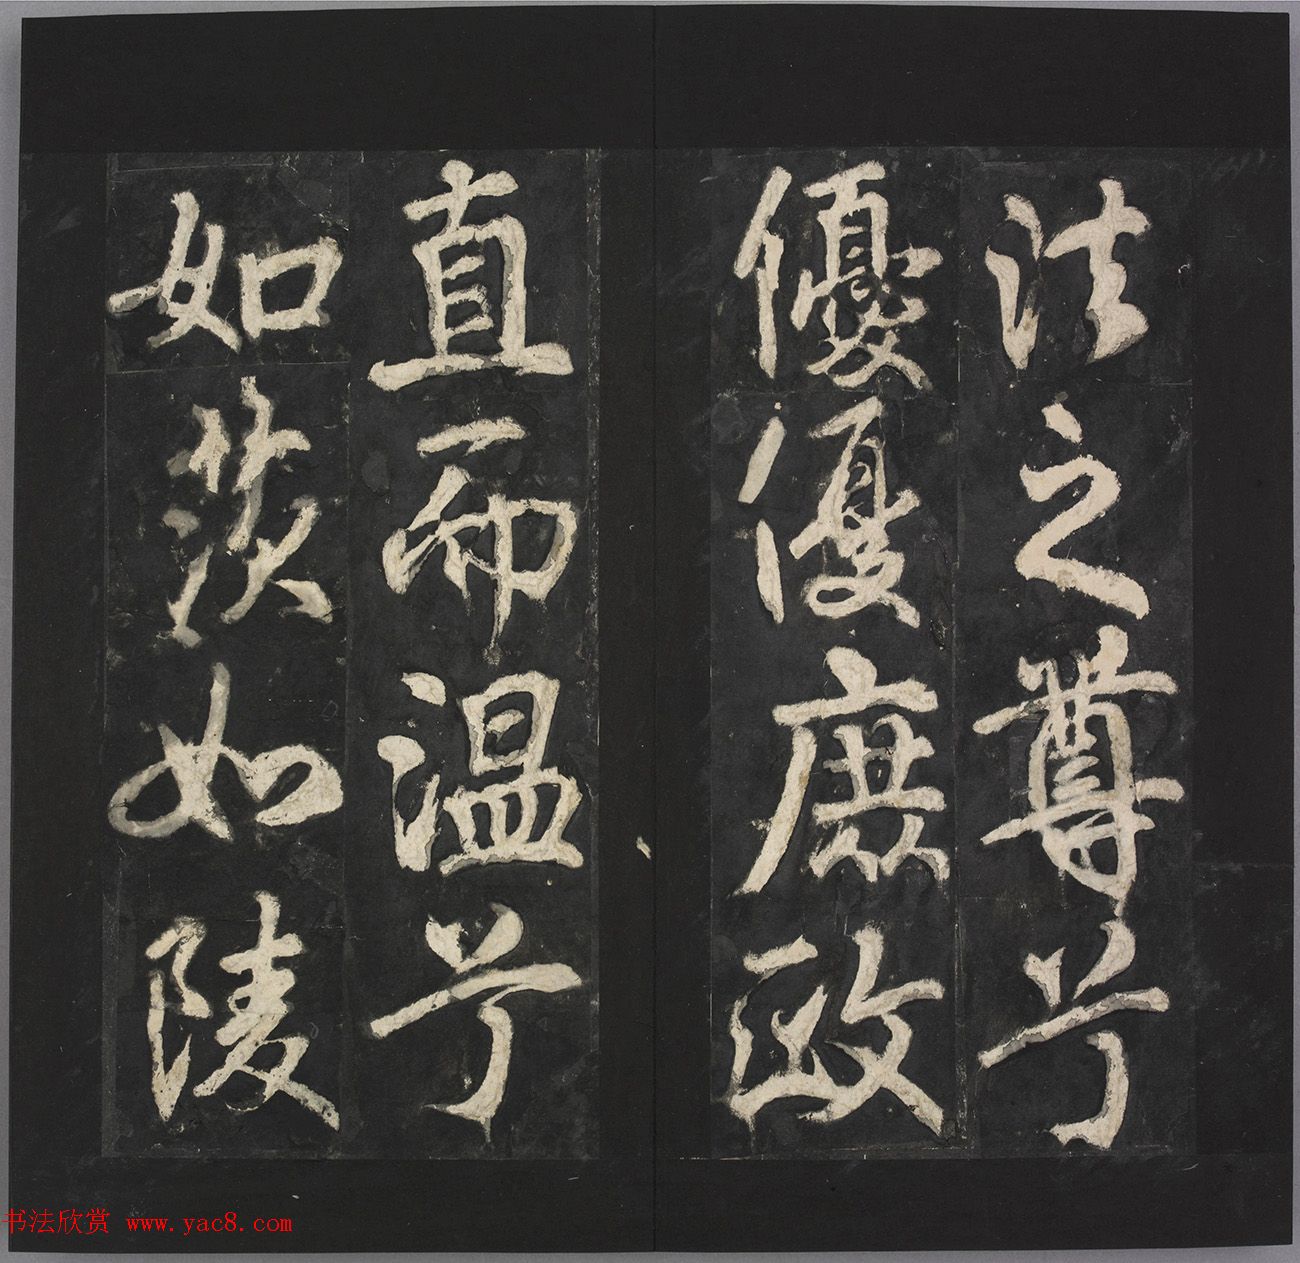 法之尊兮
優優庶政
直而温兮
如茨如陵
书法欣赏 www.yac8.com